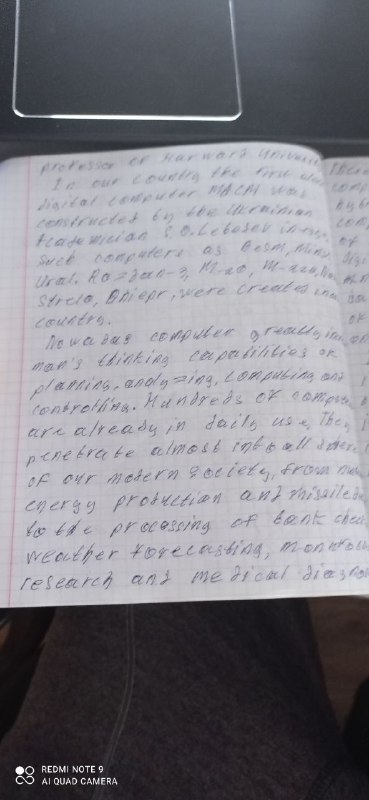 professor of Harward Universi
In our country the first
digital computer MACM was
constructed by the Ukrainian
Academician S.O.Lebedev in
such computers as Besm, Minsk
Ural, Razdan-3, M-20, M-220,
Strela, Dniepr, were created in
country.
Nowadas computer greatly in
man's thinking capabilities of
planning, analyzing, computing and
controlling. Hundreds of compu
are already in daily use, They
penetrate almost into all sphere
of our modern society, from nu
energy production and missile
to the processing of bank chec
weather forecasting,
research and medical diagno
REDMI NOTE 9
AI QUAD CAMERA